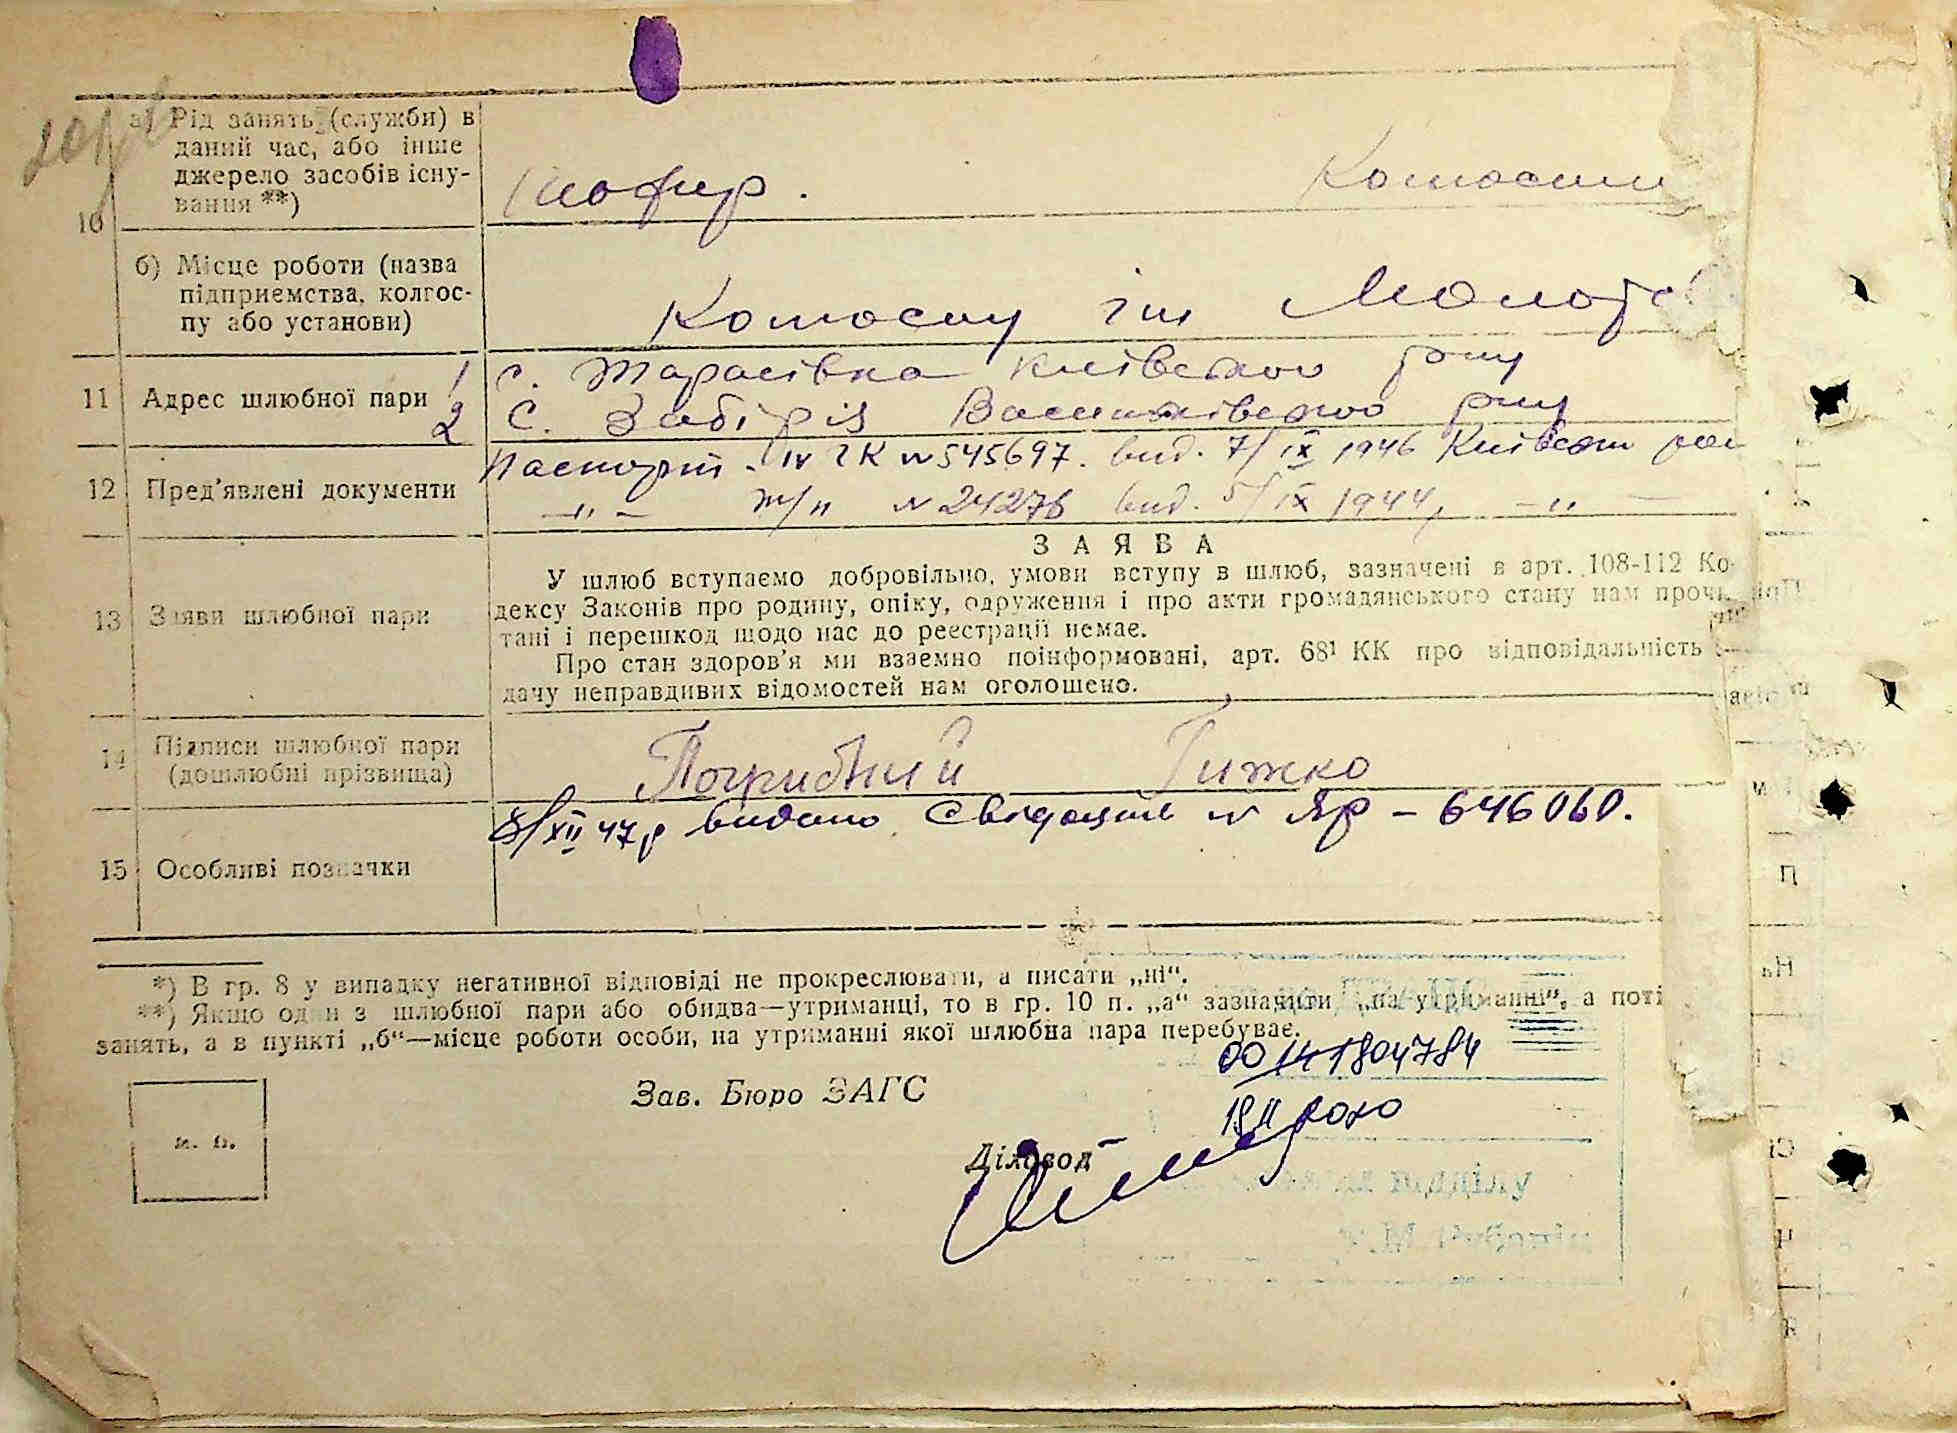 10
а) Рід занять (служби) в
даний час, або інше
джерело засобів існу-
вання **)
Шофир.
б) Місце роботи (назва
підприємства, колгос-
пу або установи)
11 Адрес шлюбної пари
1 с. Тарасівка Київського р-ну
2 С. Забір'я Васильківського р-ну
12 Пред'явлені документи
Паспорт IV ГК № 545697. вид. 7/IX 1946 Київським
—"— т/п № 24276 вид. 5/IX 1944, —"—
ЗАЯВА
13 Заяви шлюбної пари
У шлюб вступаємо добровільно, умови вступу в шлюб, зазначені в арт. 108-112 Ко-
дексу Законів про родину, опіку, одруження і про акти громадянського стану нам прочи
тані і перешкод щодо нас до реестрації немає.
Про стан здоров'я ми взаємно поінформовані, арт. 68¹ КК про відповідальність
дачу неправдивих відомостей нам оголошено.
14 Підписи шлюбної пари
(дошлюбні прізвища)
Погрибний Гижко
15 Особливі позначки
8/XII 47р видано Свідоцтв № ЯР – 646060.
*) В гр. 8 у випадку негативної відповіді не прокреслювати, а писати „ні“.
**) Якщо один з шлюбної пари або обидва—утриманці, то в гр. 10 п. „а“ зазначити „на утриманні“, а поті
занять, а в пункті „б“—місце роботи особи, на утриманні якої шлюбна пара перебуває.
00141804784
Зав. Бюро ЗАГС
Діловод
м. п.
відділу